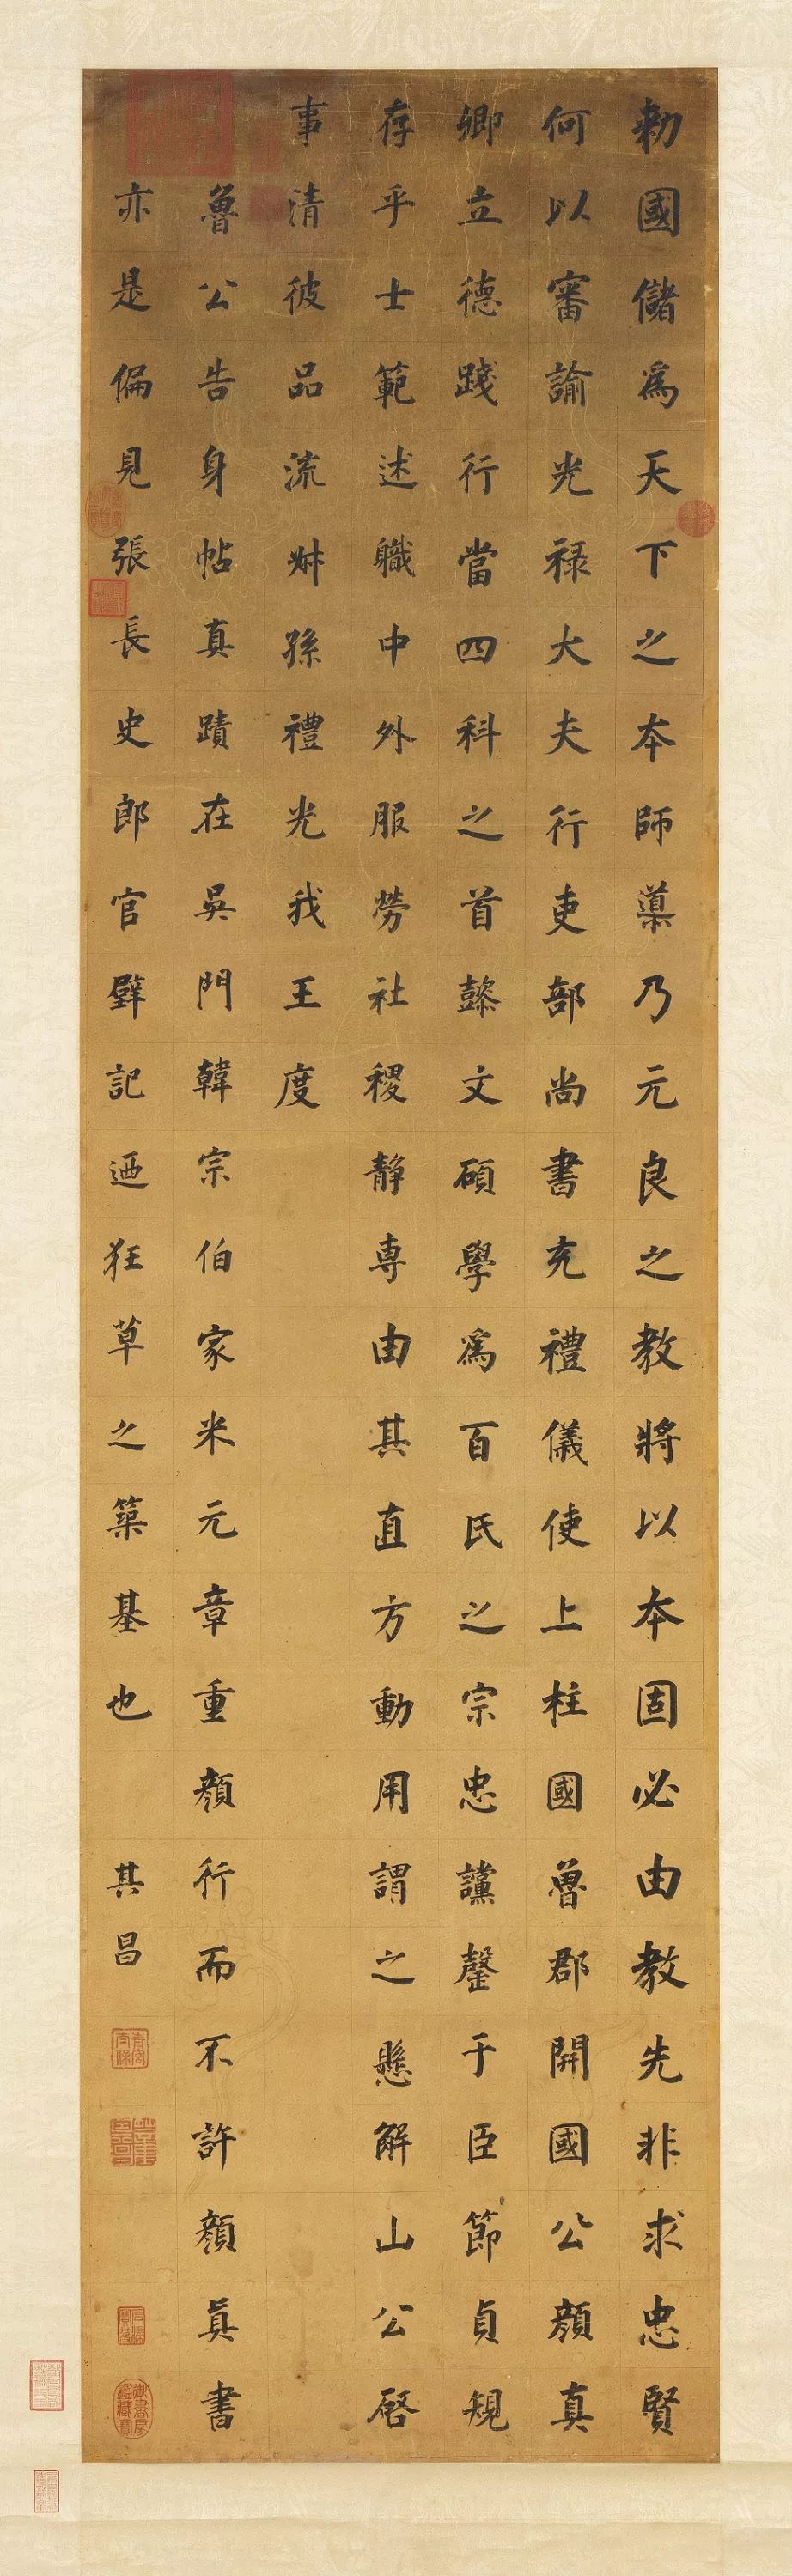 勅國儲爲天下之本師導乃元良之教將以本固必由教先非求忠賢
何以審諭光禄大夫行吏部尚書充禮儀使上柱國魯郡開國公顔真
卿立德踐行當四科之首懿文碩學爲百氏之宗忠讜罄于臣節貞規
存乎士範述職中外服勞社稷静専由其直方動用謂之懸解山公啓
事清彼品流叔孫禮光我王度
魯公告身帖真蹟在吳門韓宗伯家米元章重顔行而不許顔真書
亦是偏見張長史郎官壁記迺狂草之築基也
其昌